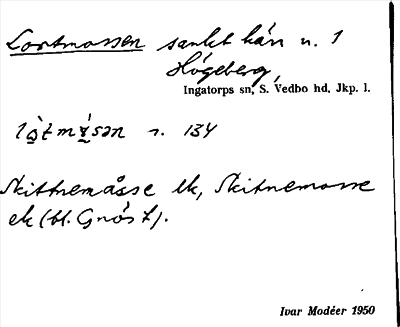 Lortmossen sankt kärr n. 1
Högeberg,
Ingatorps sn, S. Vedbo hd, Jkp. l.
s. 134
Skittnemåsse lk, Skitnemosse
ek (bl. Gnöst).
Ivar Modéer 1950